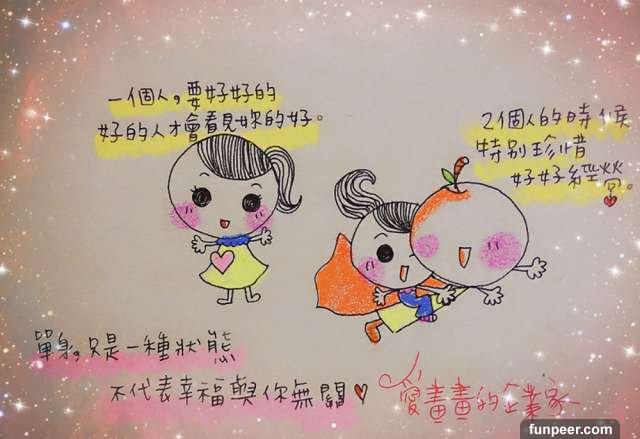 一個人，要好好的
好的人才會看見妳的好。
2個人的時候
特別珍惜
好好經營。
單身，只是一種狀態
不代表幸福與你無關
愛畫畫的企業家
funpeer.com